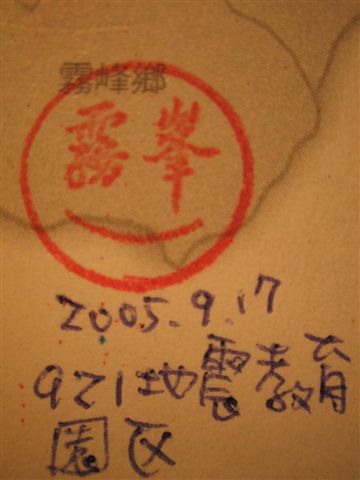 霧峰鄉
霧峯
2005.9.17
921地震教育
園区